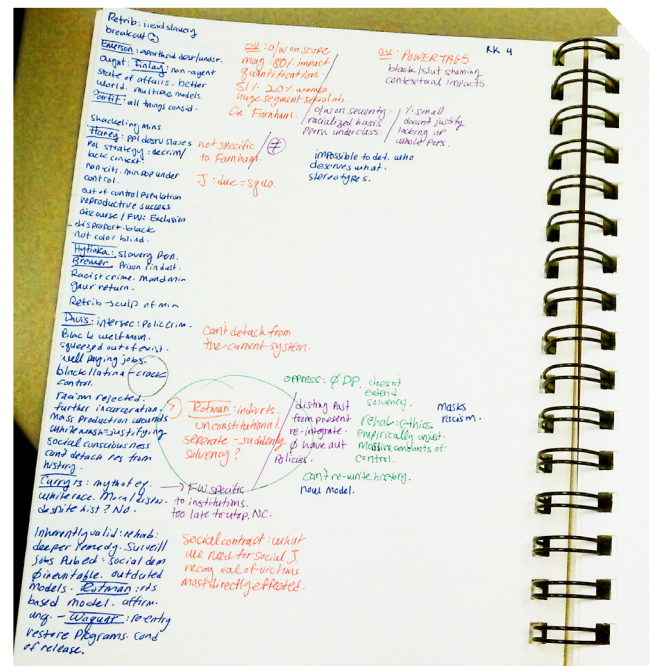 Retrib: inoid slavery
breakout
Emerson: apartheid desr/undsr.
ought: Finlay: non-agent
state of affairs. better
world. multiple models
Parfit: all things consid.
Shackeling mins
Haney: ppl desrv slaves
Pol strategy: decrim/
back connect
non-cits. min pop under
control.
out of control population
reproductive success
discourse / FW: Exclusion
disproport. black
not color blind.
slavery Pun.
Bremer: Prison / indust.
Racist crime. mand min
gaur return.
Retrib → sculp of min
Davis: intersec: Police crim.
Black welf mom.
squeezed out of exist.
well paying jobs.
black/latina → crack
control.
racism rejected.
further incarceration
Mass Production wounds
whitewash → justifying
social consciousness
can't detach res from
history.
Curry is: myth of ex.
white race. Moral disen.
despite hist? No.
Inherently valid: rehab:
deeper remedy. Surveill
jobs Pub ed: social dem
Ø inevitable. outdated
models. Rotman: rts
based model. affirm.
unq. – Wacquant: re-entry
restore Programs. Cond
of release.
o/w on scope
mag: 80% impact
quantification
51% 20% women
huge segment
Ox Farnham.
not specific
to Farnham.
J: due = squo.
o/w on severity
racialized basis
perm underclass
% small
doesn't justify
locking up
whole pers.
impossible to det. who
deserves what.
stereotypes.
OV: POWERTAGS
black/slut shaming
contextual impacts
RK 4
can't detach from
the current system.
Rotman: indiv rts.
unconstitutional.
seperate - suddenly
solvency?
oppress: Ø DP. doesn't
extend
solvency.
disting Past
from present
re-integrate.
Ø have aut
Policies.
rehab: ethics
empirically unjust.
Massive amounts of
control.
masks
racism.
can't re-write history.
new model.
→ FW specific
to institutions.
too late to utop. NC.
Social contract: what
we need for social J
recog val of victims
most directly effected.